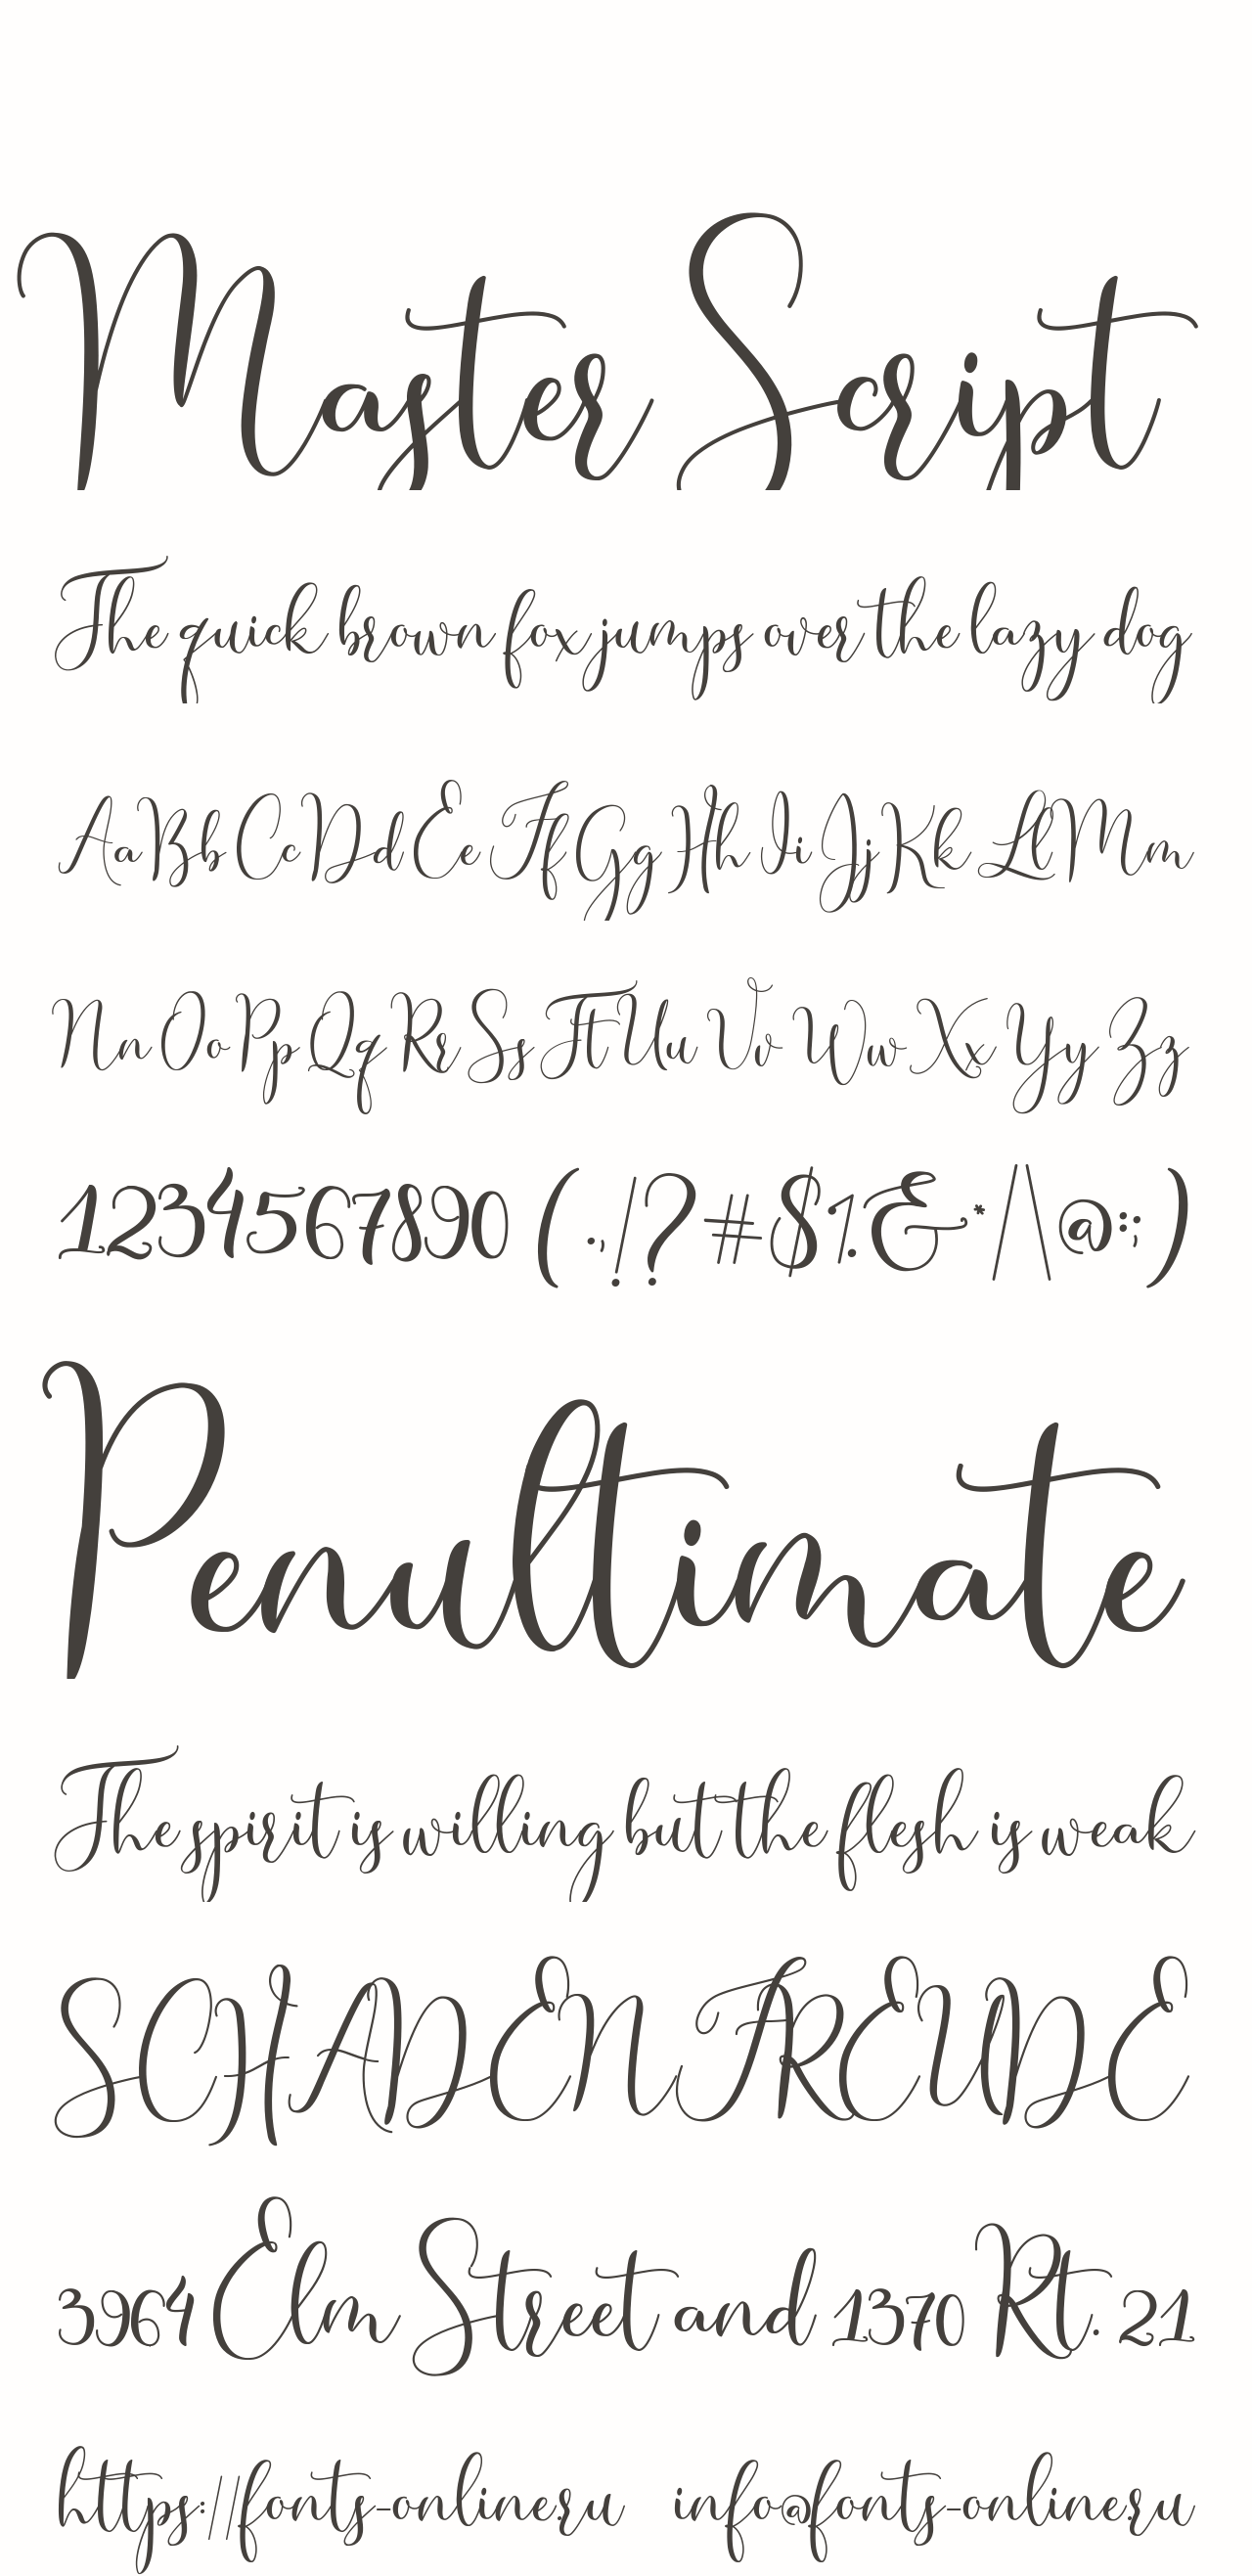 Master Script
The quick brown fox jumps over the lazy dog
Aa Bb Cc Dd Ee Ff Gg Hh Ii Jj Kk Ll Mm
Nn Oo Pp Qq Rr Ss Tt Uu Vv Ww Xx Yy Zz
1234567890 (.,!?#$%&*/\@:;)
Penultimate
The spirit is willing but the flesh is weak
SCHADENFREUDE
3964 Elm Street and 1370 Rt. 21
https://fonts-online.ru info@fonts-online.ru